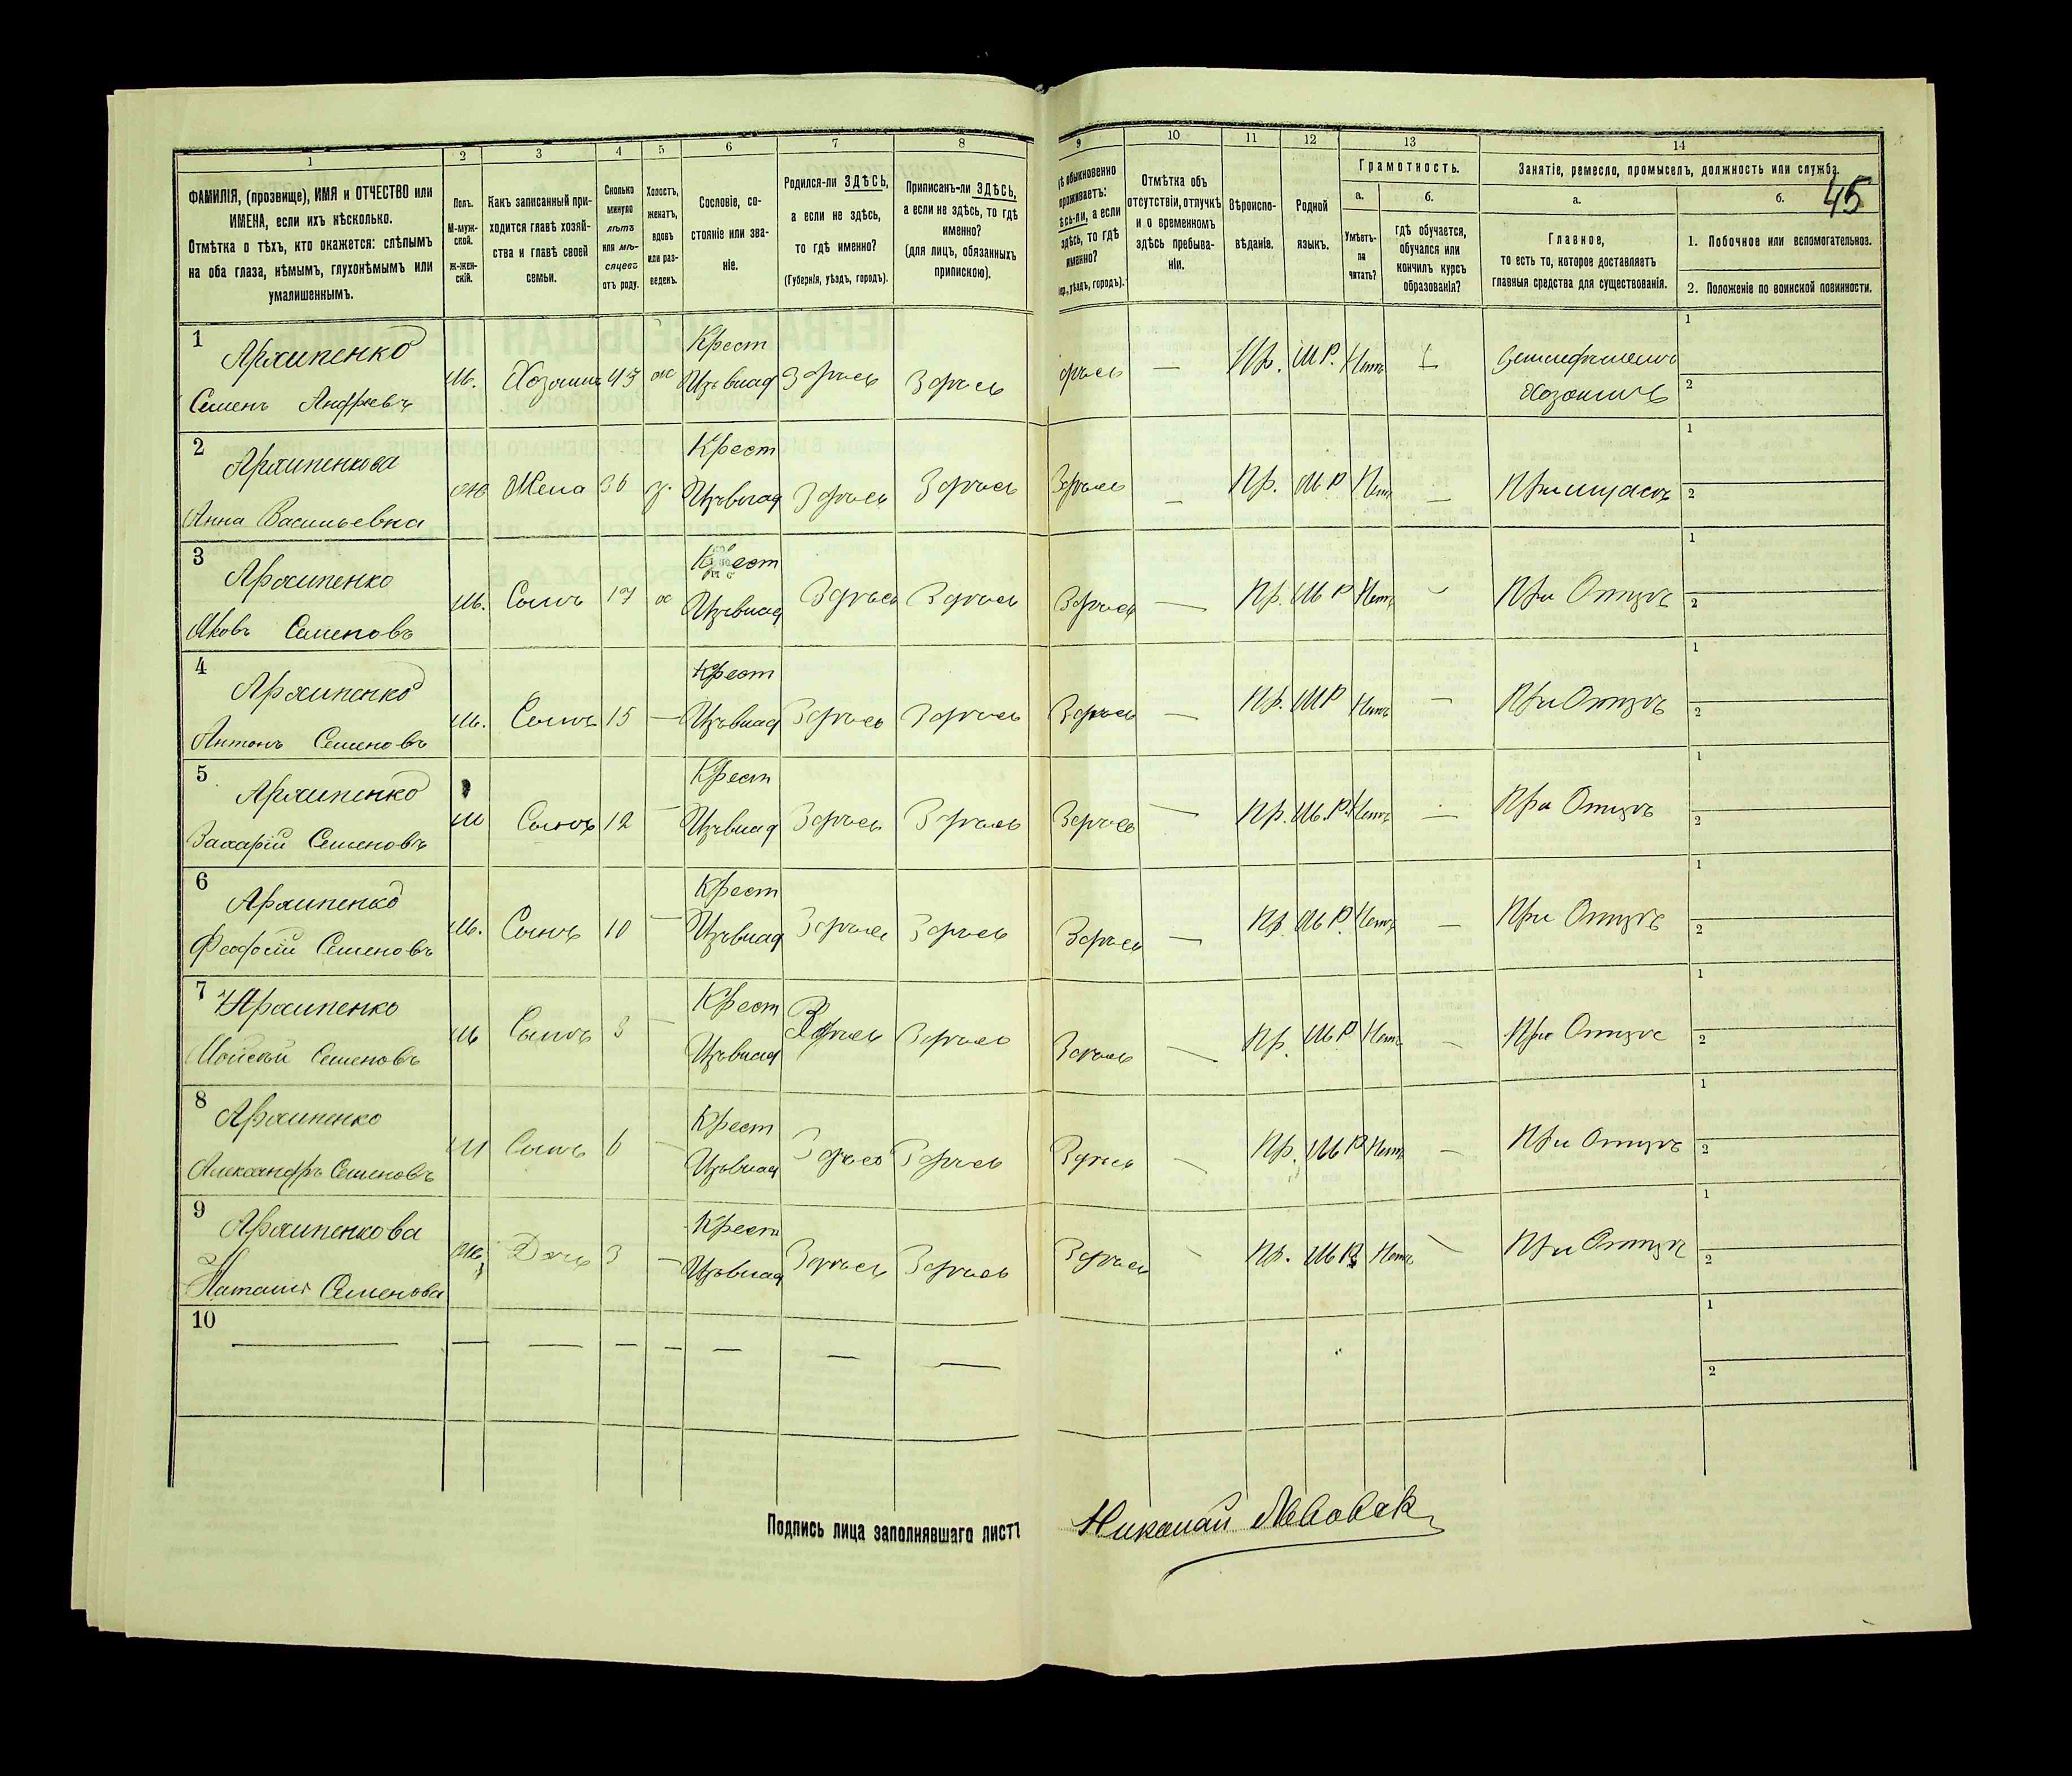 1 2 3 4 5 6 7 8 9 10 11 12 13 14
ФАМИЛІЯ, (прозвище), ИМЯ и ОТЧЕСТВО или
ИМЕНА, если ихъ нѣсколько.
Отмѣтка о тѣхъ, кто окажется: слѣпымъ
на оба глаза, нѣмымъ, глухонѣмымъ или
умалишеннымъ.
Полъ.
М-муж-
ской.
Ж-жен-
скій.
Какъ записанный при-
ходится главѣ хозяй-
ства и главѣ своей
семьи.
Сколько
минуло
лѣтъ
или мѣ-
сяцевъ
отъ роду.
Холостъ,
женатъ,
вдовъ
или раз-
веденъ.
Сословіе, со-
стояніе или зва-
ніе.
Родился-ли ЗДѢСЬ,
а если не здѣсь,
то гдѣ именно?
(Губернія, уѣздъ, городъ).
Приписанъ-ли ЗДѢСЬ,
а если не здѣсь, то гдѣ
именно?
(для лицъ, обязанныхъ
припискою).
обыкновенно
проживаетъ:
ѣсь-ли, а если
здѣсь, то гдѣ
именно?
уѣздъ, городъ).
Отмѣтка объ
отсутствіи, отлучкѣ
и о временномъ
здѣсь пребыва-
ніи.
Вѣроиспо-
вѣданіе.
Родной
языкъ.
Грамотность.
а.
Умѣетъ-
ли
читать?
б.
гдѣ обучается,
обучался или
кончилъ курсъ
образованія?
Занятіе, ремесло, промыселъ, должность или служба.
45
а.
Главное,
то есть то, которое доставляетъ
главныя средства для существованія.
б.
1. Побочное или вспомогательное.
2. Положеніе по воинской повинности.
1 Архипенко Крест 1
Семенъ Андреевъ м. Хозяинъ 43 ж Здѣсь Здѣсь Пр. М Р. Нетъ Хозяинъ 2
2 Архипенкова Крест 1
Анна Васильевна ж Жена 36 Здѣсь Здѣсь Здѣсь Пр. М Р 2
3 Архипенко Крест 1
Яковъ Семеновъ м. Сынъ 17 Здѣсь Здѣсь Здѣсь Пр. М Р Нетъ При Отцѣ 2
4 Архипенко Крест 1
Антонъ Семеновъ м. Сынъ 15 — Здѣсь Здѣсь Здѣсь — Пр. М Р Нетъ — При Отцѣ 2
5 Архипенко Крест 1
Захарій Семеновъ м Сынъ 12 — Здѣсь Здѣсь Здѣсь — Пр. М. Р. Нетъ — При Отцѣ 2
6 Архипенко Крест 1
Феодосій Семеновъ м. Сынъ 10 — Здѣсь Здѣсь Здѣсь — Пр М Р. Нетъ — При Отцѣ 2
7 Архипенко Крест 1
Мойсей Семеновъ м Сынъ — Здѣсь Здѣсь Здѣсь — Пр. М Р Нетъ — При Отцѣ 2
8 Архипенко Крест 1
Александръ Семеновъ м Сынъ 6 — Здѣсь Здѣсь Здѣсь — Пр. М Р Нетъ — При Отцѣ 2
9 Архипенкова Крест 1
Наталия Семенова ж Дочь 3 — Здѣсь Здѣсь Здѣсь — Пр. М Р Нетъ — При Отцѣ 2
10 — — — — — — — — 1
2
Подпись лица заполнявшаго листъ Николай